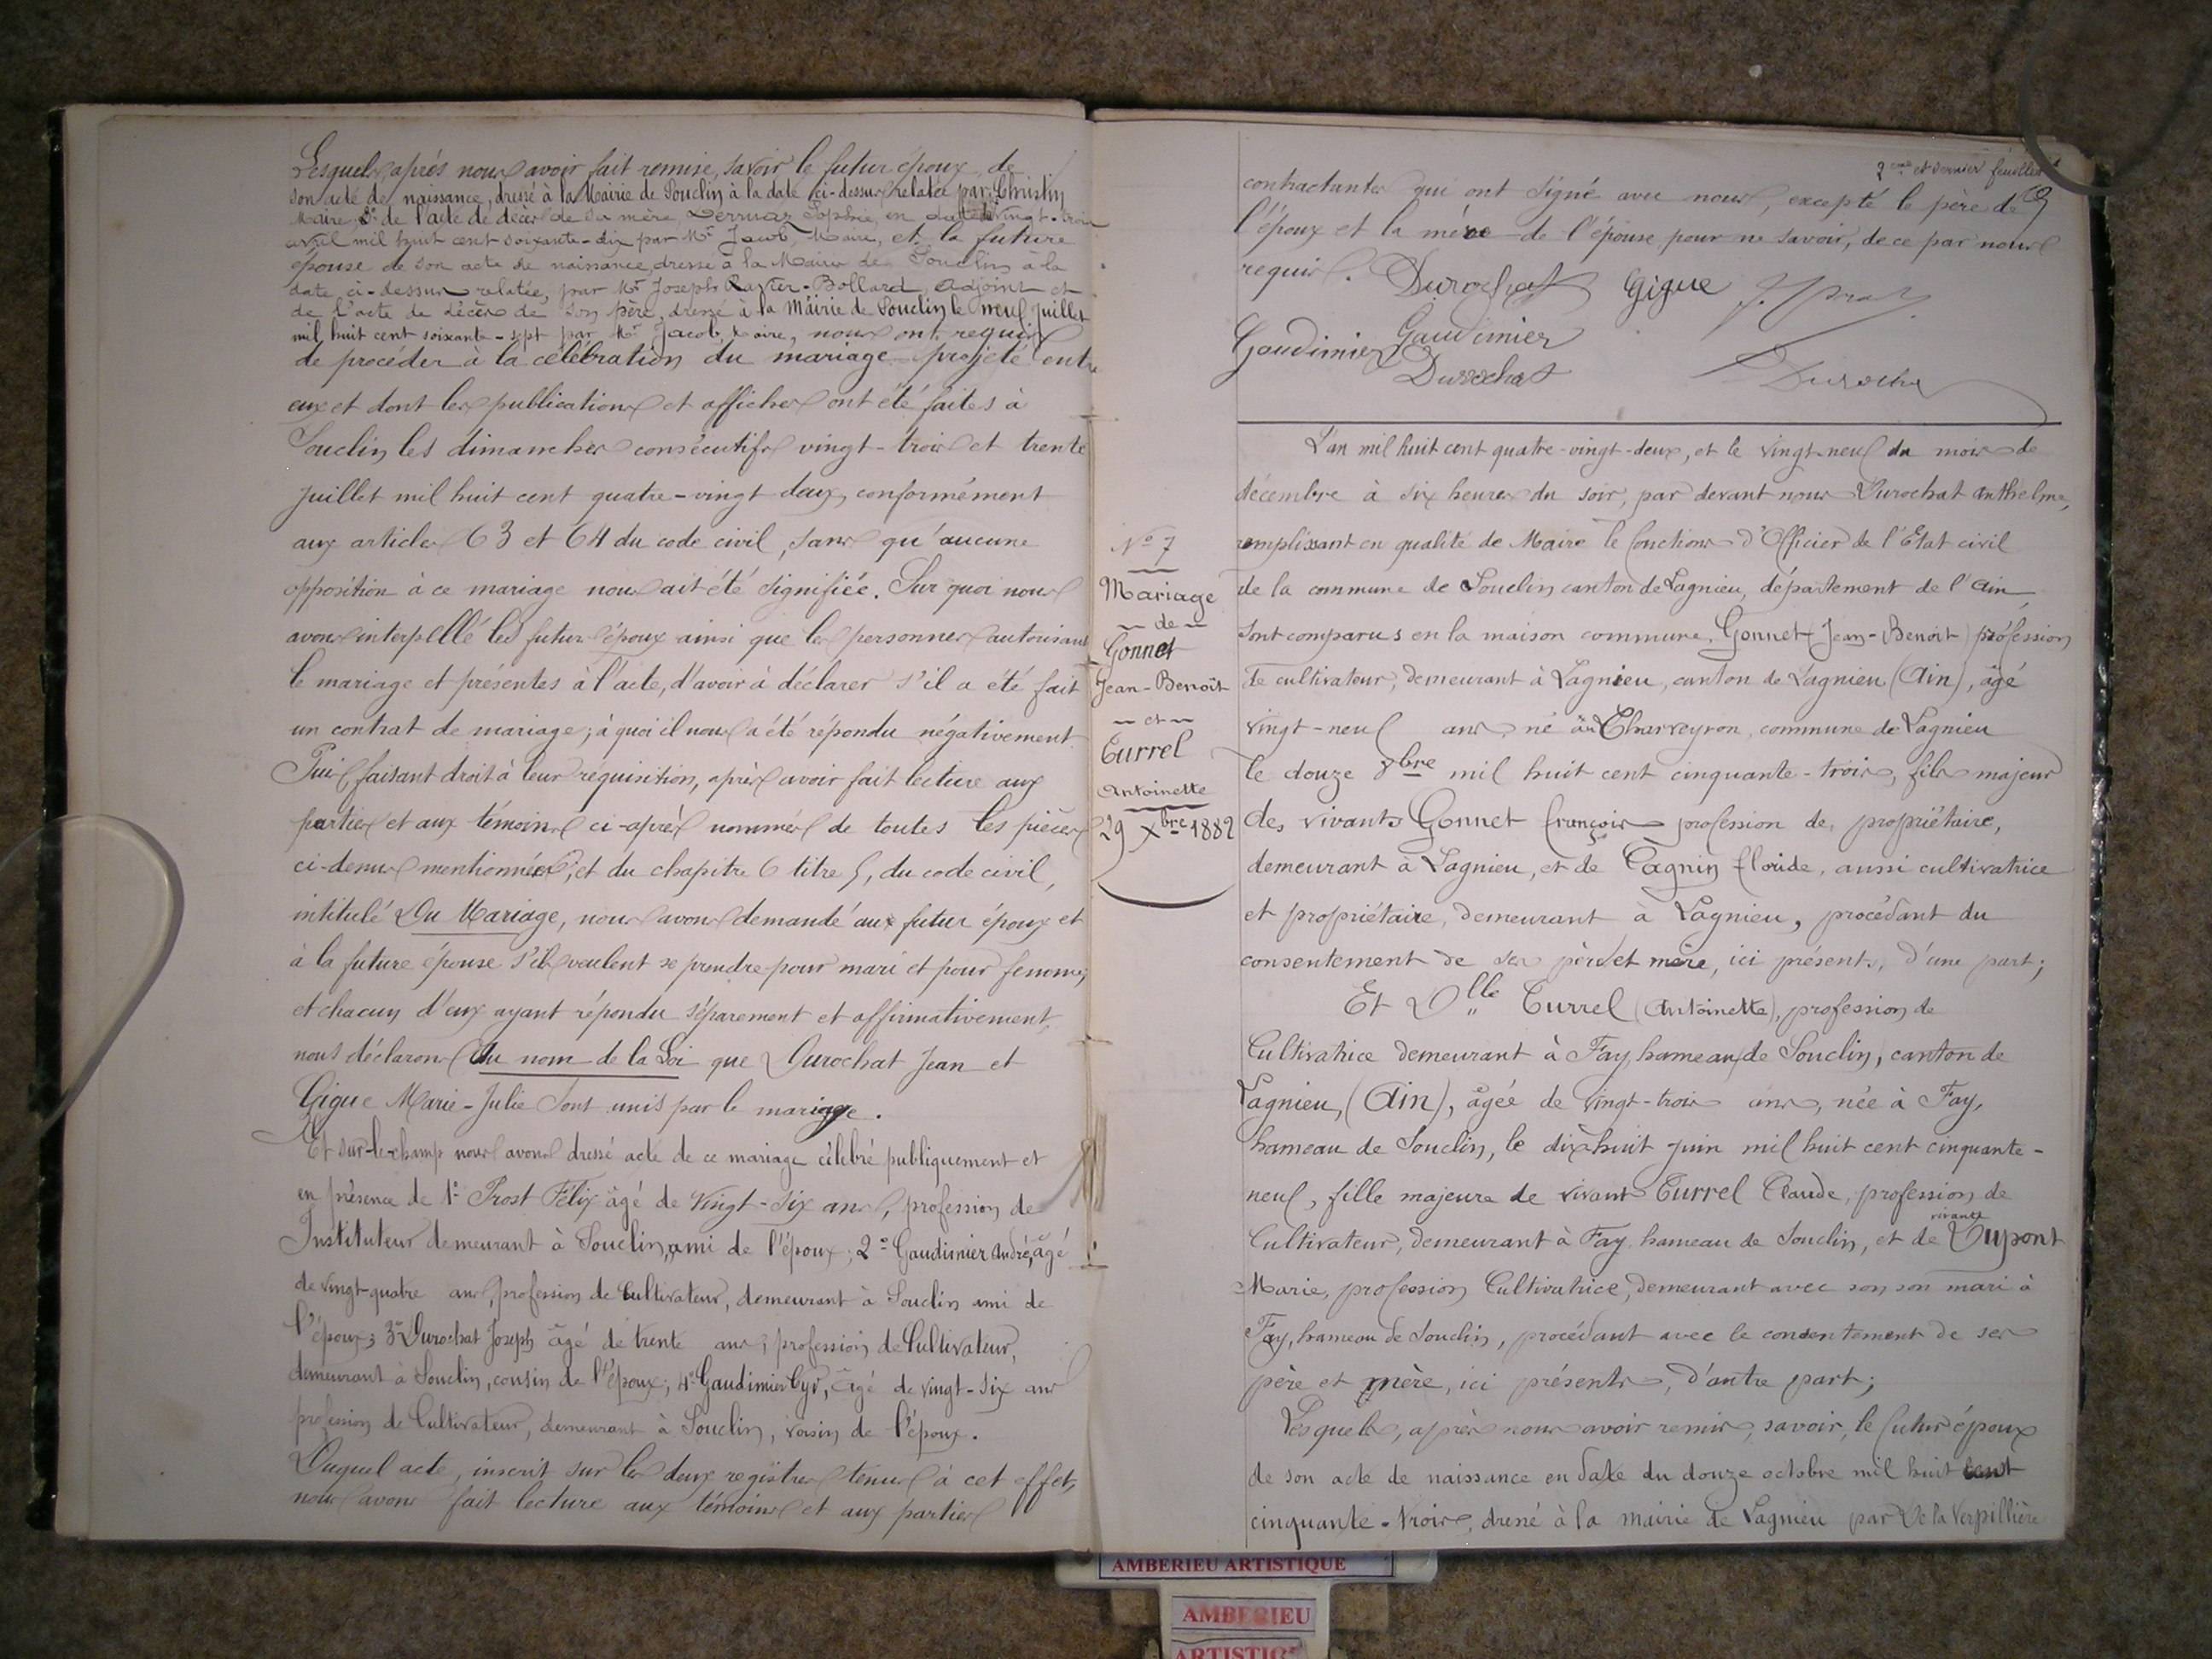 Lesquels, après nous avoir fait remise, savoir le futur époux, de
son acte de naissance, dressé à la Mairie de Souclin à la date ci-dessus relatée par Christin
Maire, 2° de l'acte de décès de sa mère Sophie, en date vingt-trois
avril mil huit cent soixante-dix par Mr Jacob, Maire, et la future
épouse de son acte de naissance, dressé à la Mairie de Souclin à la
date ci-dessus relatée, par Mr Joseph Ravier-Bollard, adjoint et
de l'acte de décès de son père, dressé à la Mairie de Souclin le neuf juillet
mil huit cent soixante-sept par Mr Jacob, Maire, nous ont requis
de procéder à la célébration du mariage projeté entre
eux et dont les publications et affiches ont été faites à
Souclin les dimanches consécutifs vingt-trois et trente
juillet mil huit cent quatre-vingt deux, conformément
aux articles 63 et 64 du code civil, sans qu'aucune
opposition à ce mariage nous ait été signifiée. Sur quoi nous
avons interpellé les futurs époux ainsi que les personnes autorisant
le mariage et présentes à l'acte, d'avoir à déclarer s'il a été fait
un contrat de mariage; à quoi il nous a été répondu négativement.
Puis faisant droit à leur réquisition, après avoir fait lecture aux
parties et aux témoins ci-après nommés de toutes les pièces
ci-dessus mentionnées, et du chapitre 6 titre 5, du code civil,
intitulé Du Mariage, nous avons demandé aux futur époux et
à la future épouse s'ils veulent se prendre pour mari et pour femme,
et chacun d'eux ayant répondu séparement et affirmativement,
nous déclarons au nom de la Loi que Durochat Jean et
Gigue Marie-Julie sont unis par le mariage.
Et sur-le-champ nous avons dressé acte de ce mariage célébré publiquement et
en présence de 1° Prost Félix âgé de vingt-six ans, profession de
Instituteur demeurant à Souclin, ami de l'époux; 2° Gaudimier André, âgé
de vingt-quatre ans, profession de Cultivateur, demeurant à Souclin ami de
l'époux; 3° Durochat Joseph âgé de trente ans; profession de Cultivateur,
demeurant à Souclin, cousin de l'époux; 4° Gaudimier Cyr, âgé de vingt-six ans
profession de Cultivateur, demeurant à Souclin, voisin de l'époux.
Duquel acte, inscrit sur les deux registres tenus à cet effet,
nous avons fait lecture aux témoins et aux parties
2eme et dernier feuillet
contractantes qui ont signé avec nous, excepté le père de
l'époux et la mère de l'épouse pour ne savoir, de ce par nous
requis. Durochat Gigue
Gaudimier Gaudimier
Durochat Durochat
No 7
Mariage
de
Gonnet
Jean-Benoît
et
Turrel
Antoinette
29 Xbre 1882
L'an mil huit cent quatre-vingt-deux, et le vingt-neuf du mois de
décembre à six heures du soir, par devant nous Durochat Anthelme,
remplissant en qualité de Maire le fonctions d'Officier de l'Etat civil
de la commune de Souclin canton de Lagnieu, département de l'Ain
sont comparus en la maison commune, Gonnet (Jean-Benoît) profession
de cultivateur, demeurant à Lagnieu, canton de Lagnieu (Ain), âgé
vingt-neuf ans, né au Charveyron, commune de Lagnieu
le douze 8bre mil huit cent cinquante-trois, fils majeur
des vivants Gonnet François profession de propriétaire,
demeurant à Lagnieu, et de Cagnin Floride, aussi cultivatrice
et propriétaire, demeurant à Lagnieu, procédant du
consentement de ses père et mère, ici présents, d'une part;
Et Dlle Turrel (Antoinette), profession de
Cultivatrice demeurant à Fay, hameau de Souclin, canton de
Lagnieu, (Ain), âgée de vingt-trois ans, née à Fay,
hameau de Souclin, le dix-huit juin mil huit cent cinquante-
neuf, fille majeure de vivant Turrel Claude, profession de
vivante
Cultivateur, demeurant à Fay hameau de Souclin, et de Dupont
Marie, profession Cultivatrice, demeurant avec son son mari à
Fay, hameau de Souclin, procédant avec le consentement de ses
père et mère, ici présents, d'autre part;
Lesquels, après nous avoir remis, savoir, le futur époux
de son acte de naissance en date du douze octobre mil huit cent
cinquante-trois, dressé à la mairie de Lagnieu par De la Verpillière
AMBERIEU ARTISTIQUE
AMBERIEU
ARTISTIQ